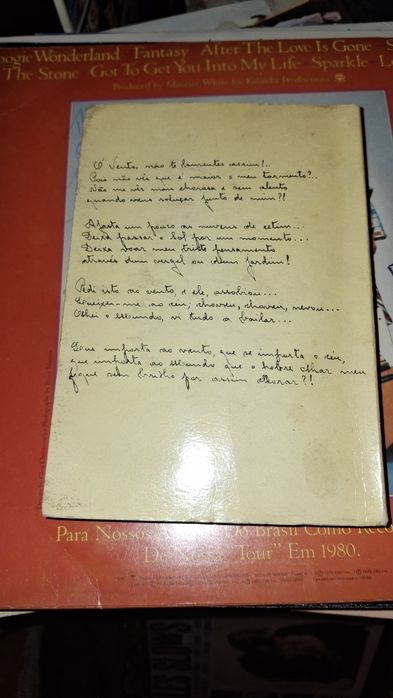 oogie Wonderland Fantasy After The Love Is Gone S
The Stone Got To Get You Into My Life Sparkle L
Produced by Maurice White for Kalimba Productions
Ó Vento, não te lamentes assim!..
Pois não vês que é maior o meu tormento?..
Não me vês mais chorosa e sem alento
quando vens soluçar junto de mim?!
Afasta um pouco as nuvens de cetim...
Deixa passar o Sol por um momento...
Deixa voar meu triste pensamento
através dum vergel ou dum jardim!
Pedi isto ao vento, e ele, assobiou...
Queixei-me ao céu; choveu, choveu, nevou...
Olhei o mundo, vi tudo a bailar...
Que importa ao vento, que se importa o céu,
que importa ao mundo que o pobre olhar meu
fique sem brilho por assim chorar?!
Para Nossos Do Brasil Como Reco
De Nossa "Tour" Em 1980.